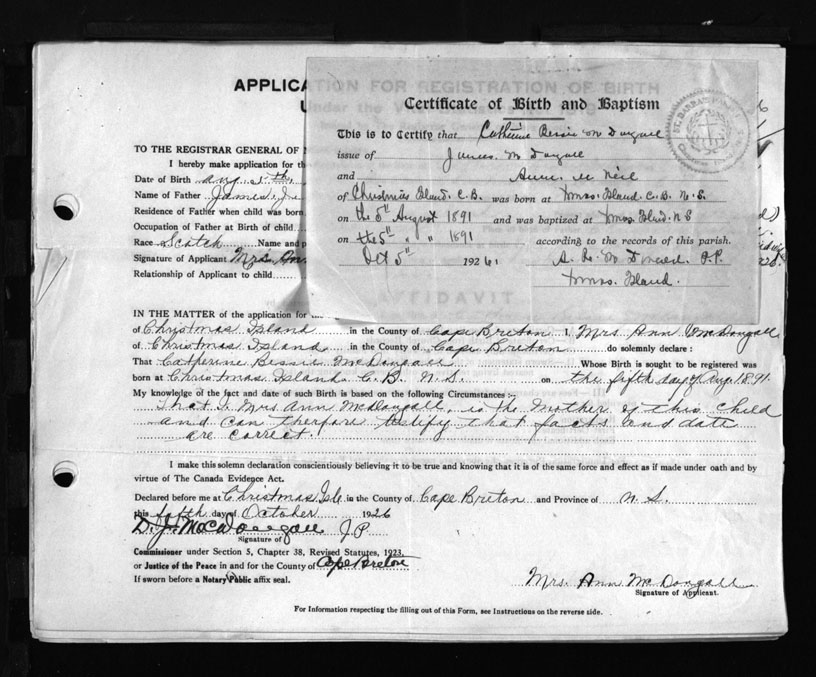 APPLICATION FOR REGISTRATION OF BIRTH
Certificate of Birth and Baptism
This is to Certify that Catherine Bessie McDougall
issue of James McDougall
and Annie McNeil
of Christmas Island. C.B. was born at Xmas. Island. C.B. N.S.
on the 5th August 1891 and was baptized at Xmas Island. N.S
on the 5th " " 1891 according to the records of this parish.
Oct 5th 1926 P.P.
Xmas. Island.
TO THE REGISTRAR GENERAL OF
I hereby make application for th
Date of Birth Aug 5th
Name of Father James J.
Residence of Father when child was born
Occupation of Father at Birth of child
Race Scotch Name and p
Signature of Applicant Mrs. Ann
Relationship of Applicant to child
AFFIDAVIT
IN THE MATTER of the application for
of Christmas Island in the County of Cape Breton I, Mrs Ann McDougall
of Christmas Island in the County of Cape Breton do solemnly declare:
That Catherine Bessie McDougall Whose Birth is sought to be registered was
born at Christmas Island C.B. N.S. on the fifth day of Aug. 1891.
My knowledge of the fact and date of such Birth is based on the following Circumstances:-
That I Mrs Ann McDougall, is the Mother of this child
and can therfore testify that facts and date
are correct.
I make this solemn declaration conscientiously believing it to be true and knowing that it is of the same force and effect as if made under oath and by
virtue of The Canada Evidence Act.
Declared before me at Christmas Isle in the County of Cape Breton and Province of N.S.
this fifth day of October 1926
D. J. McDougall J.P.
Signature of
Commissioner under Section 5, Chapter 38, Revised Statutes, 1923.
or Justice of the Peace in and for the County of Cape Breton
If sworn before a Notary Public affix seal.
Mrs. Ann McDougall
Signature of Applicant.
For Information respecting the filling out of this Form, see Instructions on the reverse side.